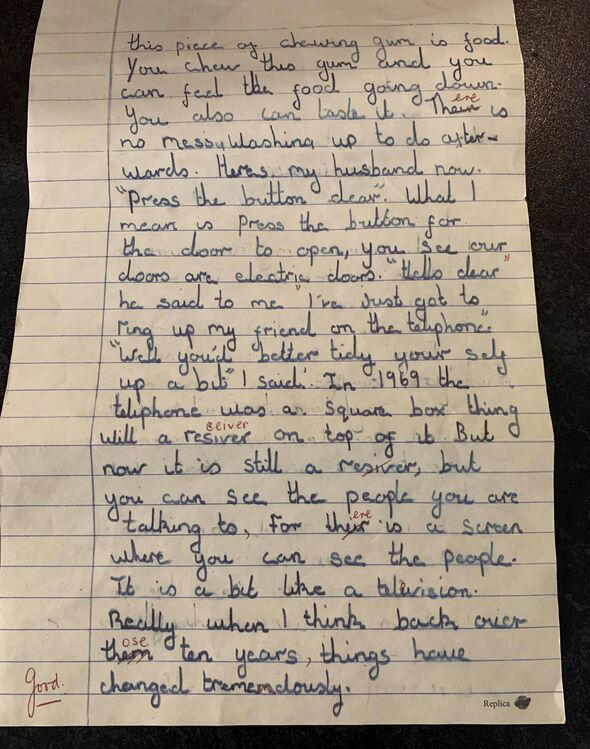 this piece of chewing gum is food.
You chew this gum and you
can feel the food going down.
You also can taste it. Their ere is
no messy washing up to do after-
wards. Heres my husband now.
"Press the button dear". What I
mean is Press the button for
the door to open, you see our
doors are electric doors. "Hello dear"
he said to me "I've Just got to
ring up my friend on the teliphone".
"Well you'd better tidy your self
up a bit" I said. In 1969 the
teliphone was a square box thing
will a resiver ceiver on top of it But
now it is still a resiver, but
you can see the people you are
talking to, For their ere is a screen
where you can see the people.
It is a bit like a television.
Really when I think back over
them ose ten years, things have
changed trememdously.
Good.
Replica